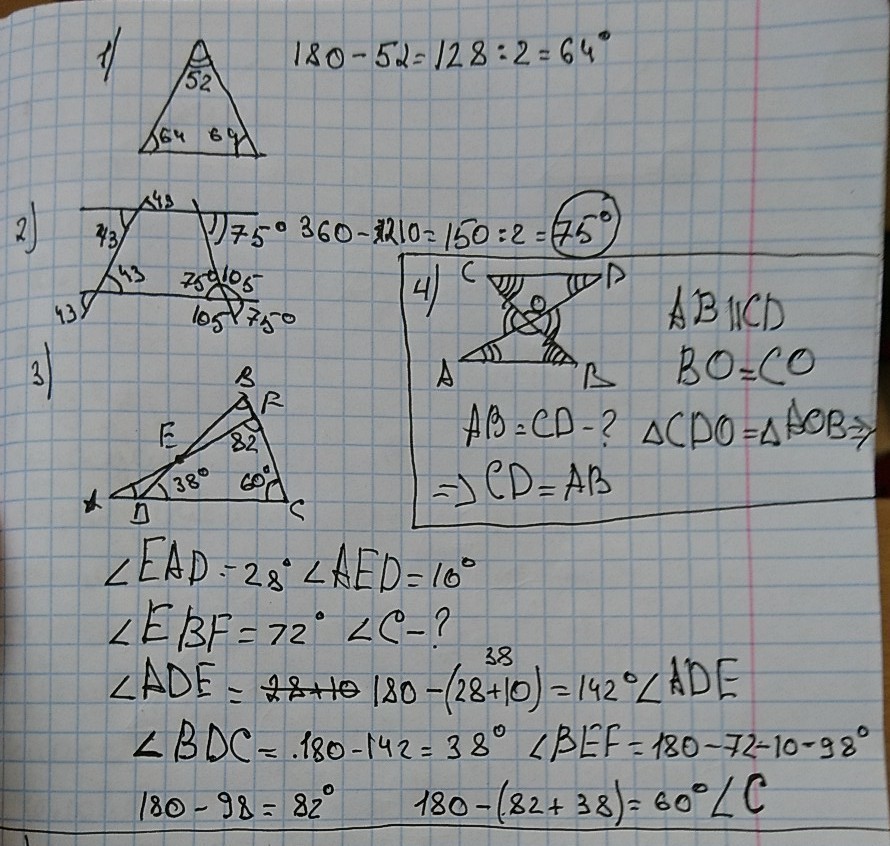 1) 180-52=128:2=64°
52
64 64
2) 43 43 75° 360-210=150:2=75°
43 75° 105
43 105 75°
4) C D
O
A B
AB||CD
BO=CO
AB=CD-? △CDO=△AOB⇒
⇒CD=AB
3) B
F
E 82
38° 60°
A D C
∠EAD=28° ∠AED=10°
∠EBF=72° ∠C-?
38
∠ADE= 28+10 180-(28+10)=142° ∠ADE
∠BDC=.180-142=38° ∠BEF=180-72-10-98°
180-98=82° 180-(82+38)=60° ∠C